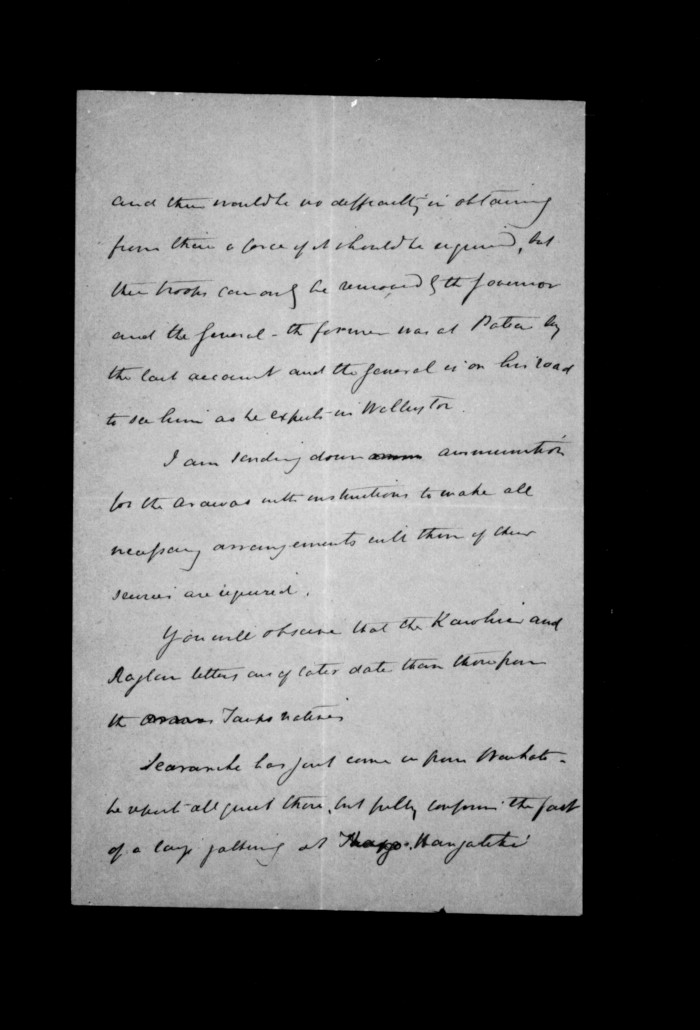 and there would be no difficulty in obtaining
from there a force if it should be required, but
the troops can only be removed by the Governor
and the General - the former was at Patea by
the last account and the General is on his road
to see him as he expects in Wellington.
I am sending down ammunition
for the Arawas with instructions to make all
necessary arrangements with them if their
services are required.
You will observe that the Kawhia and
Raglan letters are of later date than those from
the Taupo natives
has just come in from Waikato -
he reports all quiet there, but fully confirms the fact
of a large gathering at Hangatiki